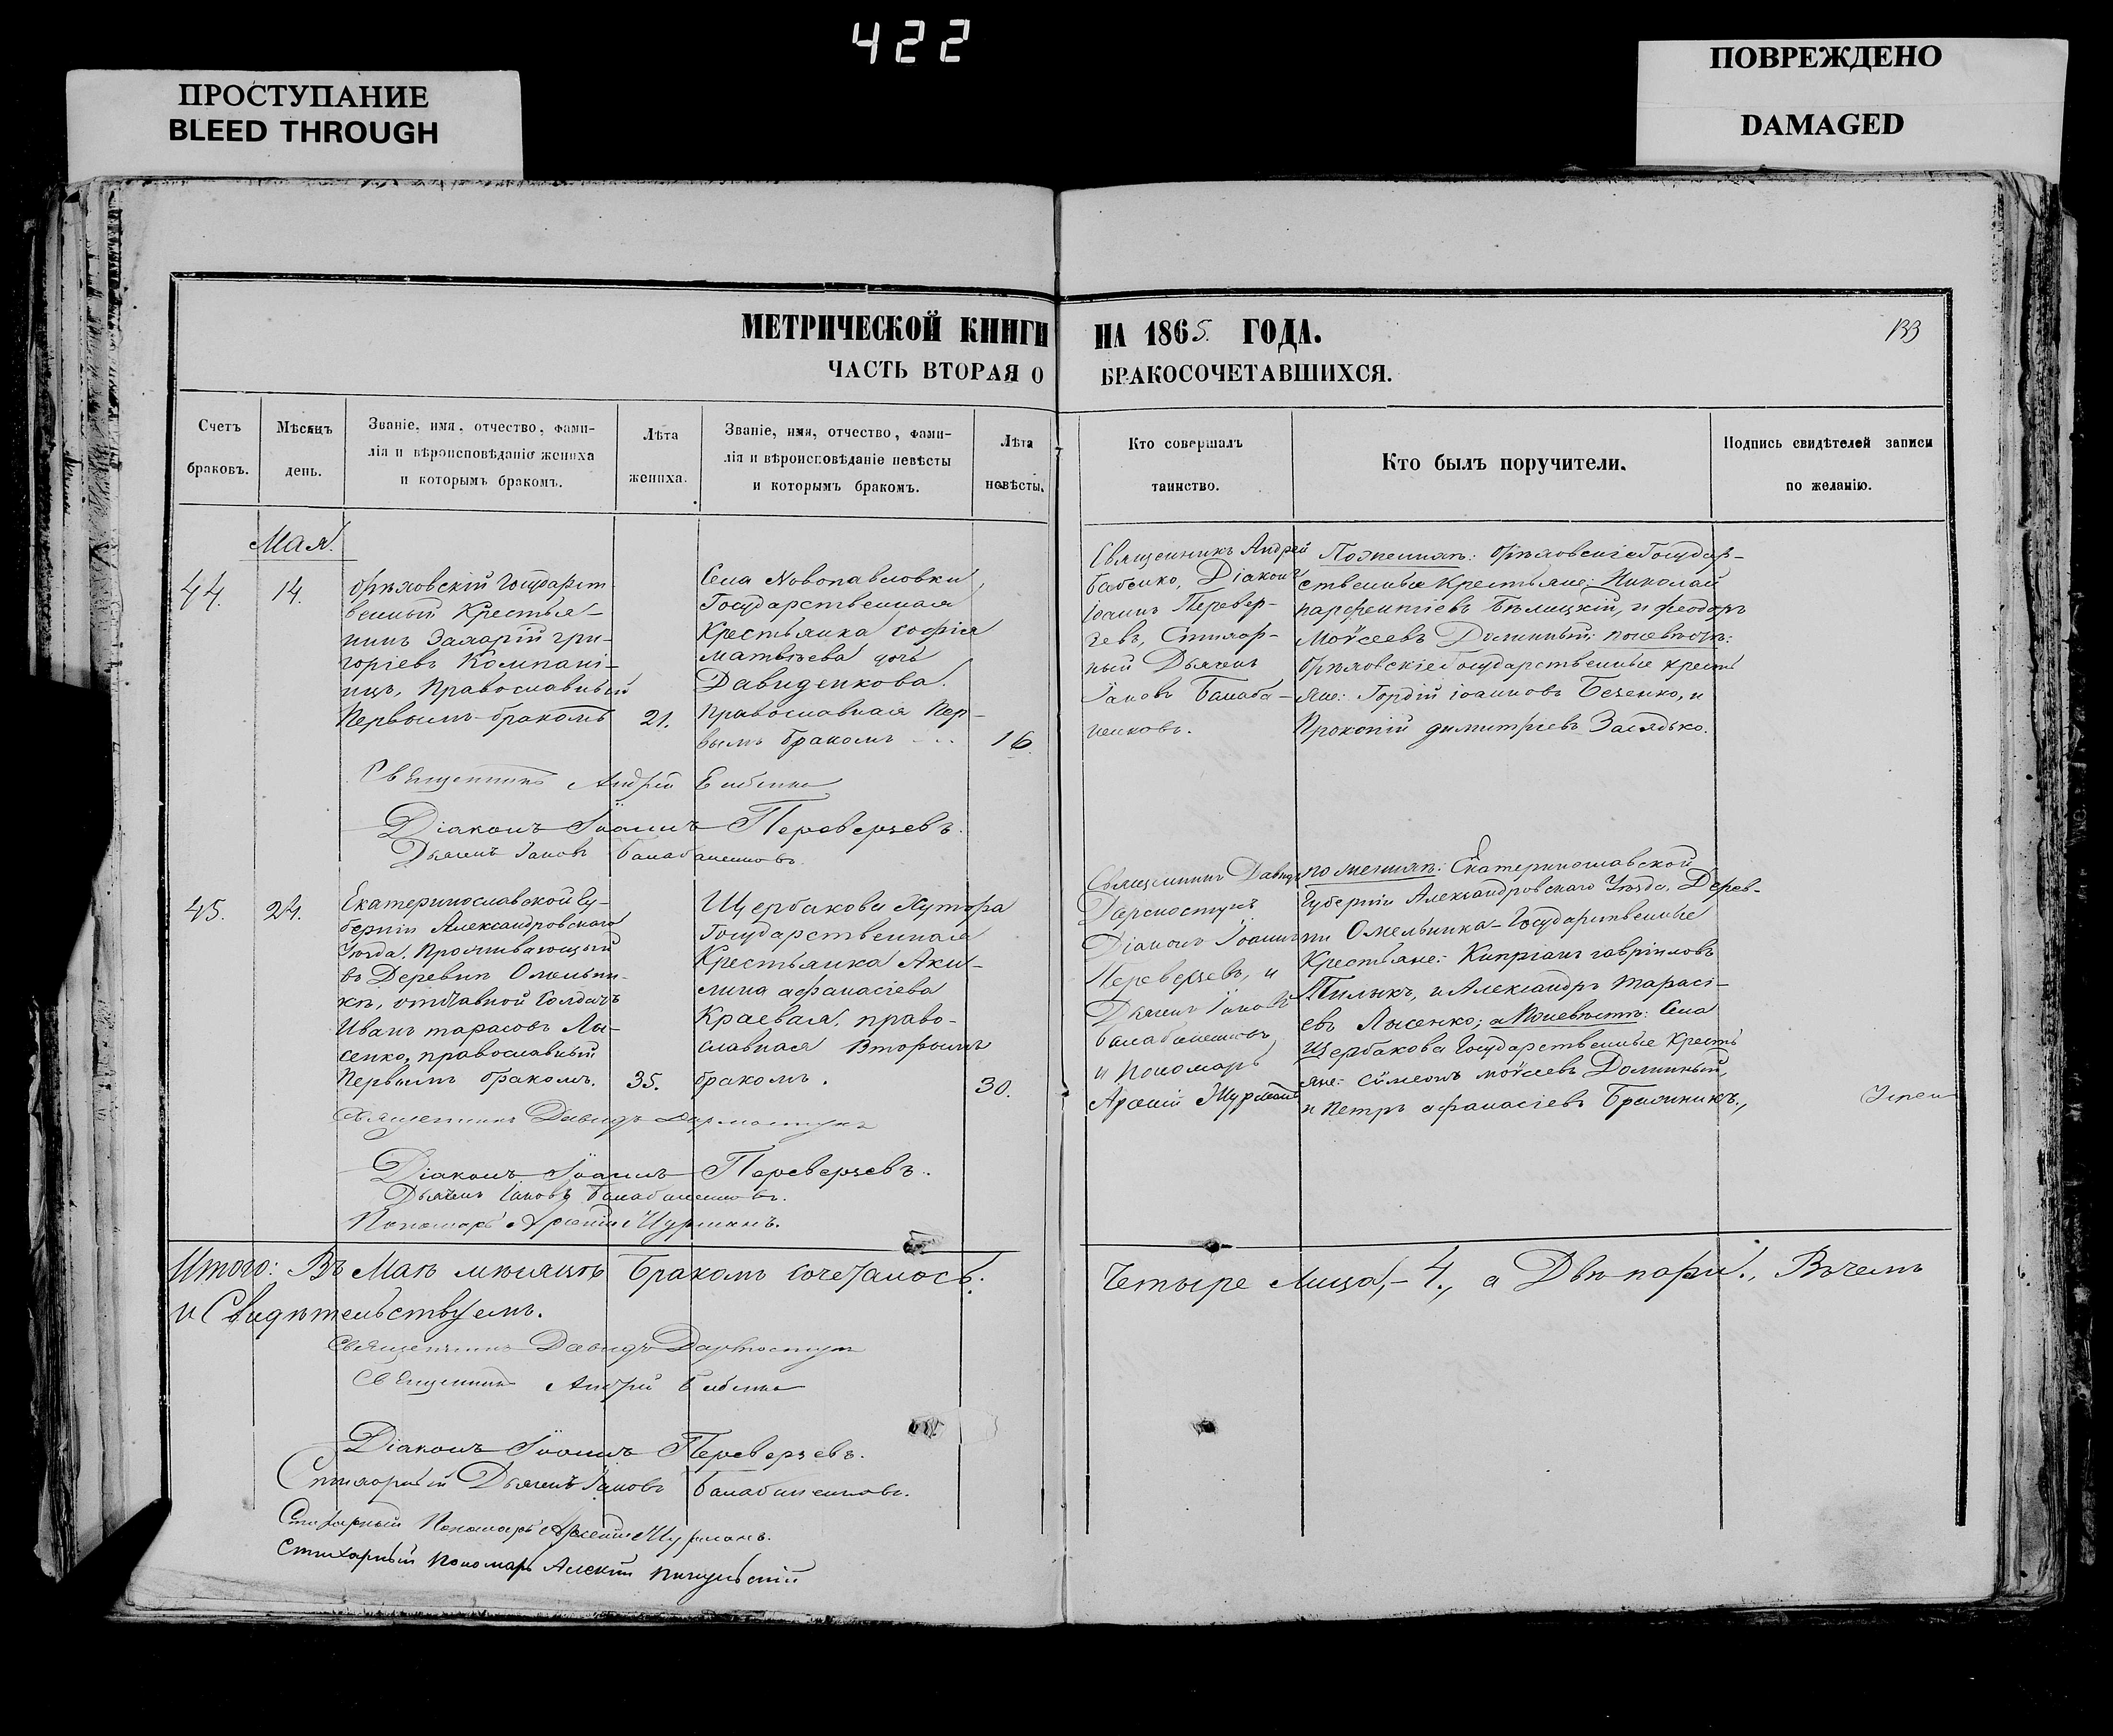 422
ПРОСТУПАНИЕ
BLEED THROUGH
ПОВРЕЖДЕНО
DAMAGED
МЕТРИЧЕСКОЙ КНИГИ НА 1865. ГОДА.
133
ЧАСТЬ ВТОРАЯ О БРАКОСОЧЕТАВШИХСЯ.
Счетъ
браковъ.
Мѣсяцъ
день.
Званіе, имя, отчество, фами-
лія и вѣроисповѣданіе жениха
и которымъ бракомъ.
Лѣта
жениха.
Званіе, имя, отчество, фами-
лія и вѣроисповѣданіе невѣсты
и которымъ бракомъ.
Лѣта
невѣсты.
Кто совершалъ
таинство.
Кто былъ поручители.
Подпись свидѣтелей записи
по желанію.
Мая.
44.
14.
Орѣховскій Государст
венный Крестья-
нинъ Захарій Гри-
горіевъ Компані-
ицъ, Православный
Первымъ бракомъ
21.
Села Новопавловки,
Государственная
Крестьянка Софія
Матвѣева дочь
Давиденкова.
Православная Пер-
вымъ бракомъ
16.
Священникъ Андрей
Бабенко, Діаконъ
Іоаннъ Перевер-
зевъ, Стихар-
ный Дьячекъ
Іаковъ Балаба-
ненковъ.
По женихѣ: Орѣховскіе Государ-
ственные Крестьяне: Николай
Парфентіевъ Бѣлицкій, и Феодоръ
Моѵсеевъ Долинный; по невѣстѣ:
Орѣховскіе Государственные Кресть
яне: Гордій Іоанновъ Безенко, и
Прокопій Димитріевъ Засядько.
Священникъ Андрей Бабенко
Діаконъ Іоаннъ Переверзевъ.
Дьячекъ Іаковъ Балабаненковъ.
45.
24.
Екатеринославской Гу-
берніи Александровскаго
Уѣзда, Проживающый
въ Деревнѣ Омельни-
кѣ, отставной Солдатъ
Иванъ Тарасовъ Лы-
сенко, православный
Первымъ бракомъ.
35.
Щербакова Хутора
Государственная
Крестьянка Аки-
лина Афанасіева
Краевая, право-
славная Вторымъ
бракомъ.
30.
Священникъ Давидъ
Дармостукъ
Діаконъ Іоаннъ
Переверзевъ, и
Дьячекъ Іаковъ
Балабаненковъ
и Пономарь
по женихѣ: Екатеринославской
Губерніи Александровскаго Уѣзда, Дерев-
ни Омельника Государственные
Крестьяне: Кипріанъ Гавріиловъ
и Александръ Тарасі-
евъ Лысенко; а по невѣстѣ: Села
Щербакова Государственные Кресть
яне: Сѵмеонъ Моѵсеевъ Долинный,
и Петръ Афанасіевъ
Священникъ Давидъ Дармостукъ
Діаконъ Іоаннъ Переверзевъ.
Дьячекъ Іаковъ Балабаненковъ.
Пономарь
Итого: Въ Маѣ мѣсяцѣ бракомъ сочеталось: Четыре Лица,- 4., а Двѣ пары., Въ чемъ
и Свидѣтельствуемъ.
Священникъ Давидъ Дармостукъ
Священникъ Андрей Бабенко
Діаконъ Іоаннъ Переверзевъ.
Стихарный Дьячекъ Іаковъ Балабаненковъ.
Стихарный Пономарь
Стихарный Пономарь Алексій